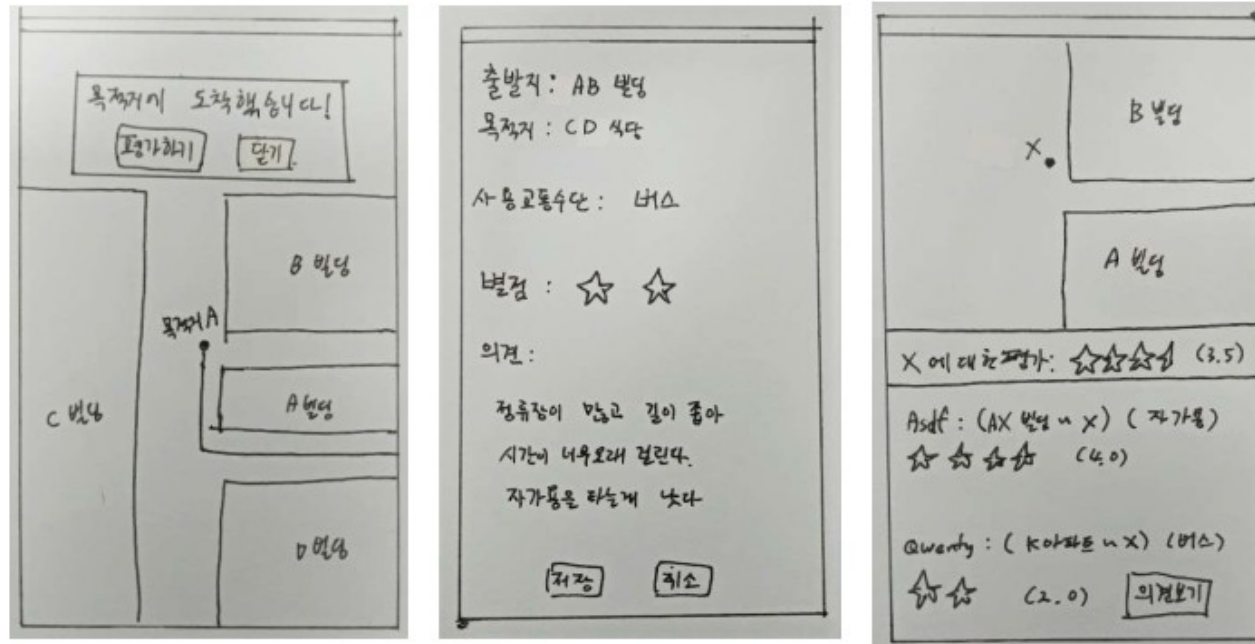 목적지에 도착했습니다!
평가하기 닫기
B 빌딩
목적지 A
A 빌딩
C 빌딩
D 빌딩
출발지 : AB 빌딩
목적지 : CD 식당
사용교통수단 : 버스
별점 : ☆ ☆
의견 :
정류장이 많고 길이 좁아
시간이 너무오래 걸린다.
자가용을 타는게 낫다
저장 취소
B 빌딩
X
A 빌딩
X에 대한평가: (3.5)
Asdf : (AX 빌딩 ~ X) (자가용)
☆ ☆ ☆ ☆ (4.0)
Qwerty : (K아파트 ~ X) (버스)
☆ ☆ (2.0) 의견보기